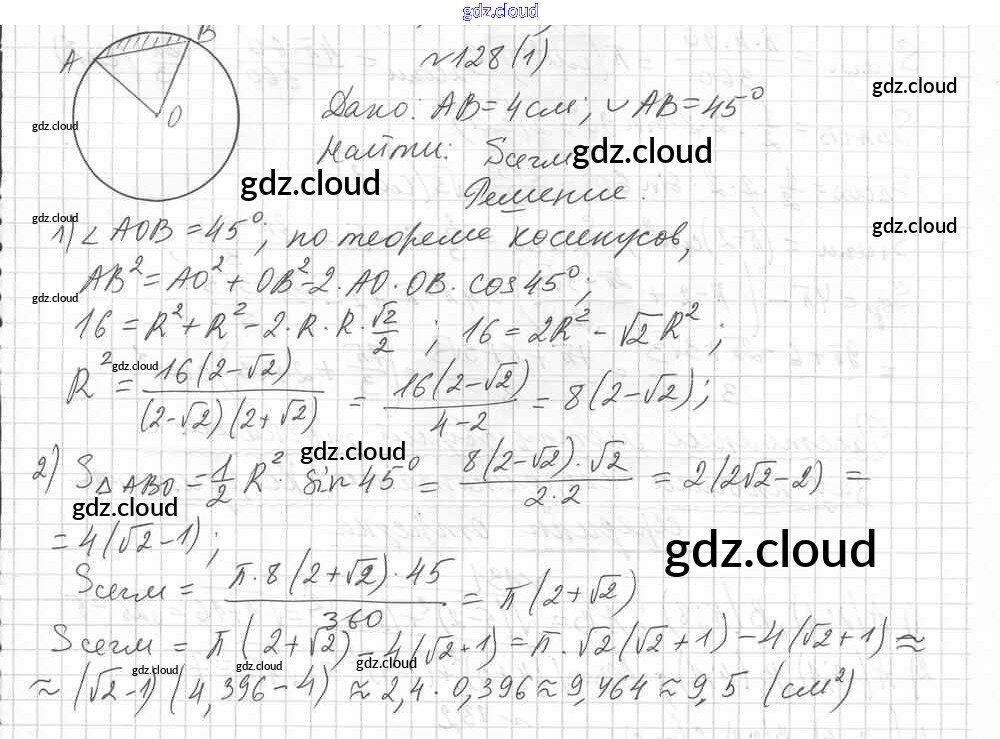 gdz.cloud
N128(1)
A B O
Дано: AB = 4 см; ◡AB = 45°
Найти: Sсегм
Решение.
1) ∠AOB = 45°; по теореме косинусов,
AB² = AO² + OB² - 2·AO·OB·cos45°;
16 = R² + R² - 2·R·R·√2/2 ; 16 = 2R² - √2R² ;
R² = 16(2-√2)/((2-√2)(2+√2)) = 16(2-√2)/(4-2) = 8(2-√2);
2) S△ABO = 1/2 R²· sin45° = 8(2-√2)·√2/(2·2) = 2(2√2-2) =
= 4(√2-1);
Sсегм = π·8(2+√2)·45/360 = π(2+√2)
Sсегм = π(2+√2) - 4(√2+1) = π·√2(√2+1) - 4(√2+1) ≈
≈ (√2-1)(4,396-4) ≈ 2,4·0,396 ≈ 9,464 ≈ 9,5 (см²)
gdz.cloud
gdz.cloud
gdz.cloud
gdz.cloud
gdz.cloud
gdz.cloud
gdz.cloud
gdz.cloud
gdz.cloud
gdz.cloud
gdz.cloud
gdz.cloud
gdz.cloud
gdz.cloud